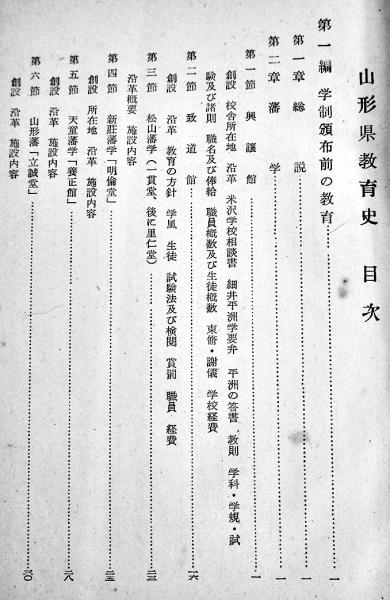 山形県教育史 目次
第一編 学制頒布前の教育……一
第一章 総説……一
第二章 藩学……一
第一節 興譲館……一
創設 校舎所在地 沿革 米沢学校相談書 細井平洲学要弁 平洲の答書 教則 学科・学規・試
験及び諸則 職名及び俸給 職員概数及び生徒概数 束脩・謝儀 学校経費
第二節 致道館……一六
創設 沿革 教育の方針 学風 生徒 試験法及び検閲 賞罰 職員 経費
第三節 松山藩学(一貫堂、後に里仁堂)……二三
沿革概要 施設内容
第四節 新荘藩学「明倫堂」……二五
創設 所在地 沿革 施設内容
第五節 天童藩学「養正館」……二八
創設 沿革 施設内容
第六節 山形藩「立誠堂」……三〇
創設 沿革 施設内容